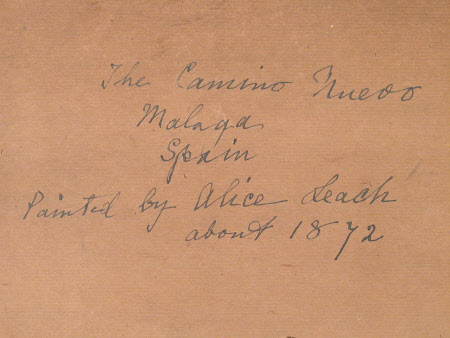 The Camino Nuevo
Malaga
Spain
Painted by Alice Leach
about 1872